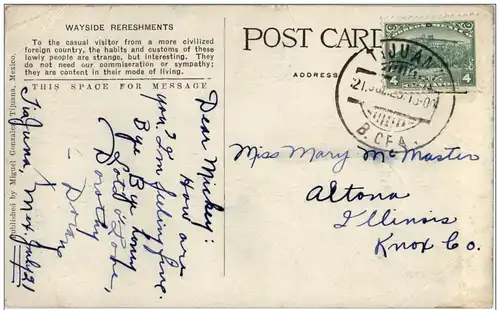 WAYSIDE RERESHMENTS
To the casual visitor from a more civilized
foreign country, the habits and customs of these
lowly people are strange, but interesting. They
do not need our commiseration or sympathy;
they are content in their mode of living.
THIS SPACE FOR MESSAGE
Published by Miguel Gonzalez, Tijuana, Mexico.
Dear Mickey:
How are
you? I'm feeling fine.
Bye Bye honey
Lots o' Love,
Dorothy
Tia Juana, Mex. July 21
POST CARD
ADDRESS
TIJUANA
B. CFA.
4
4
Miss Mary McMaster
Altona
Illinois
Knox Co.